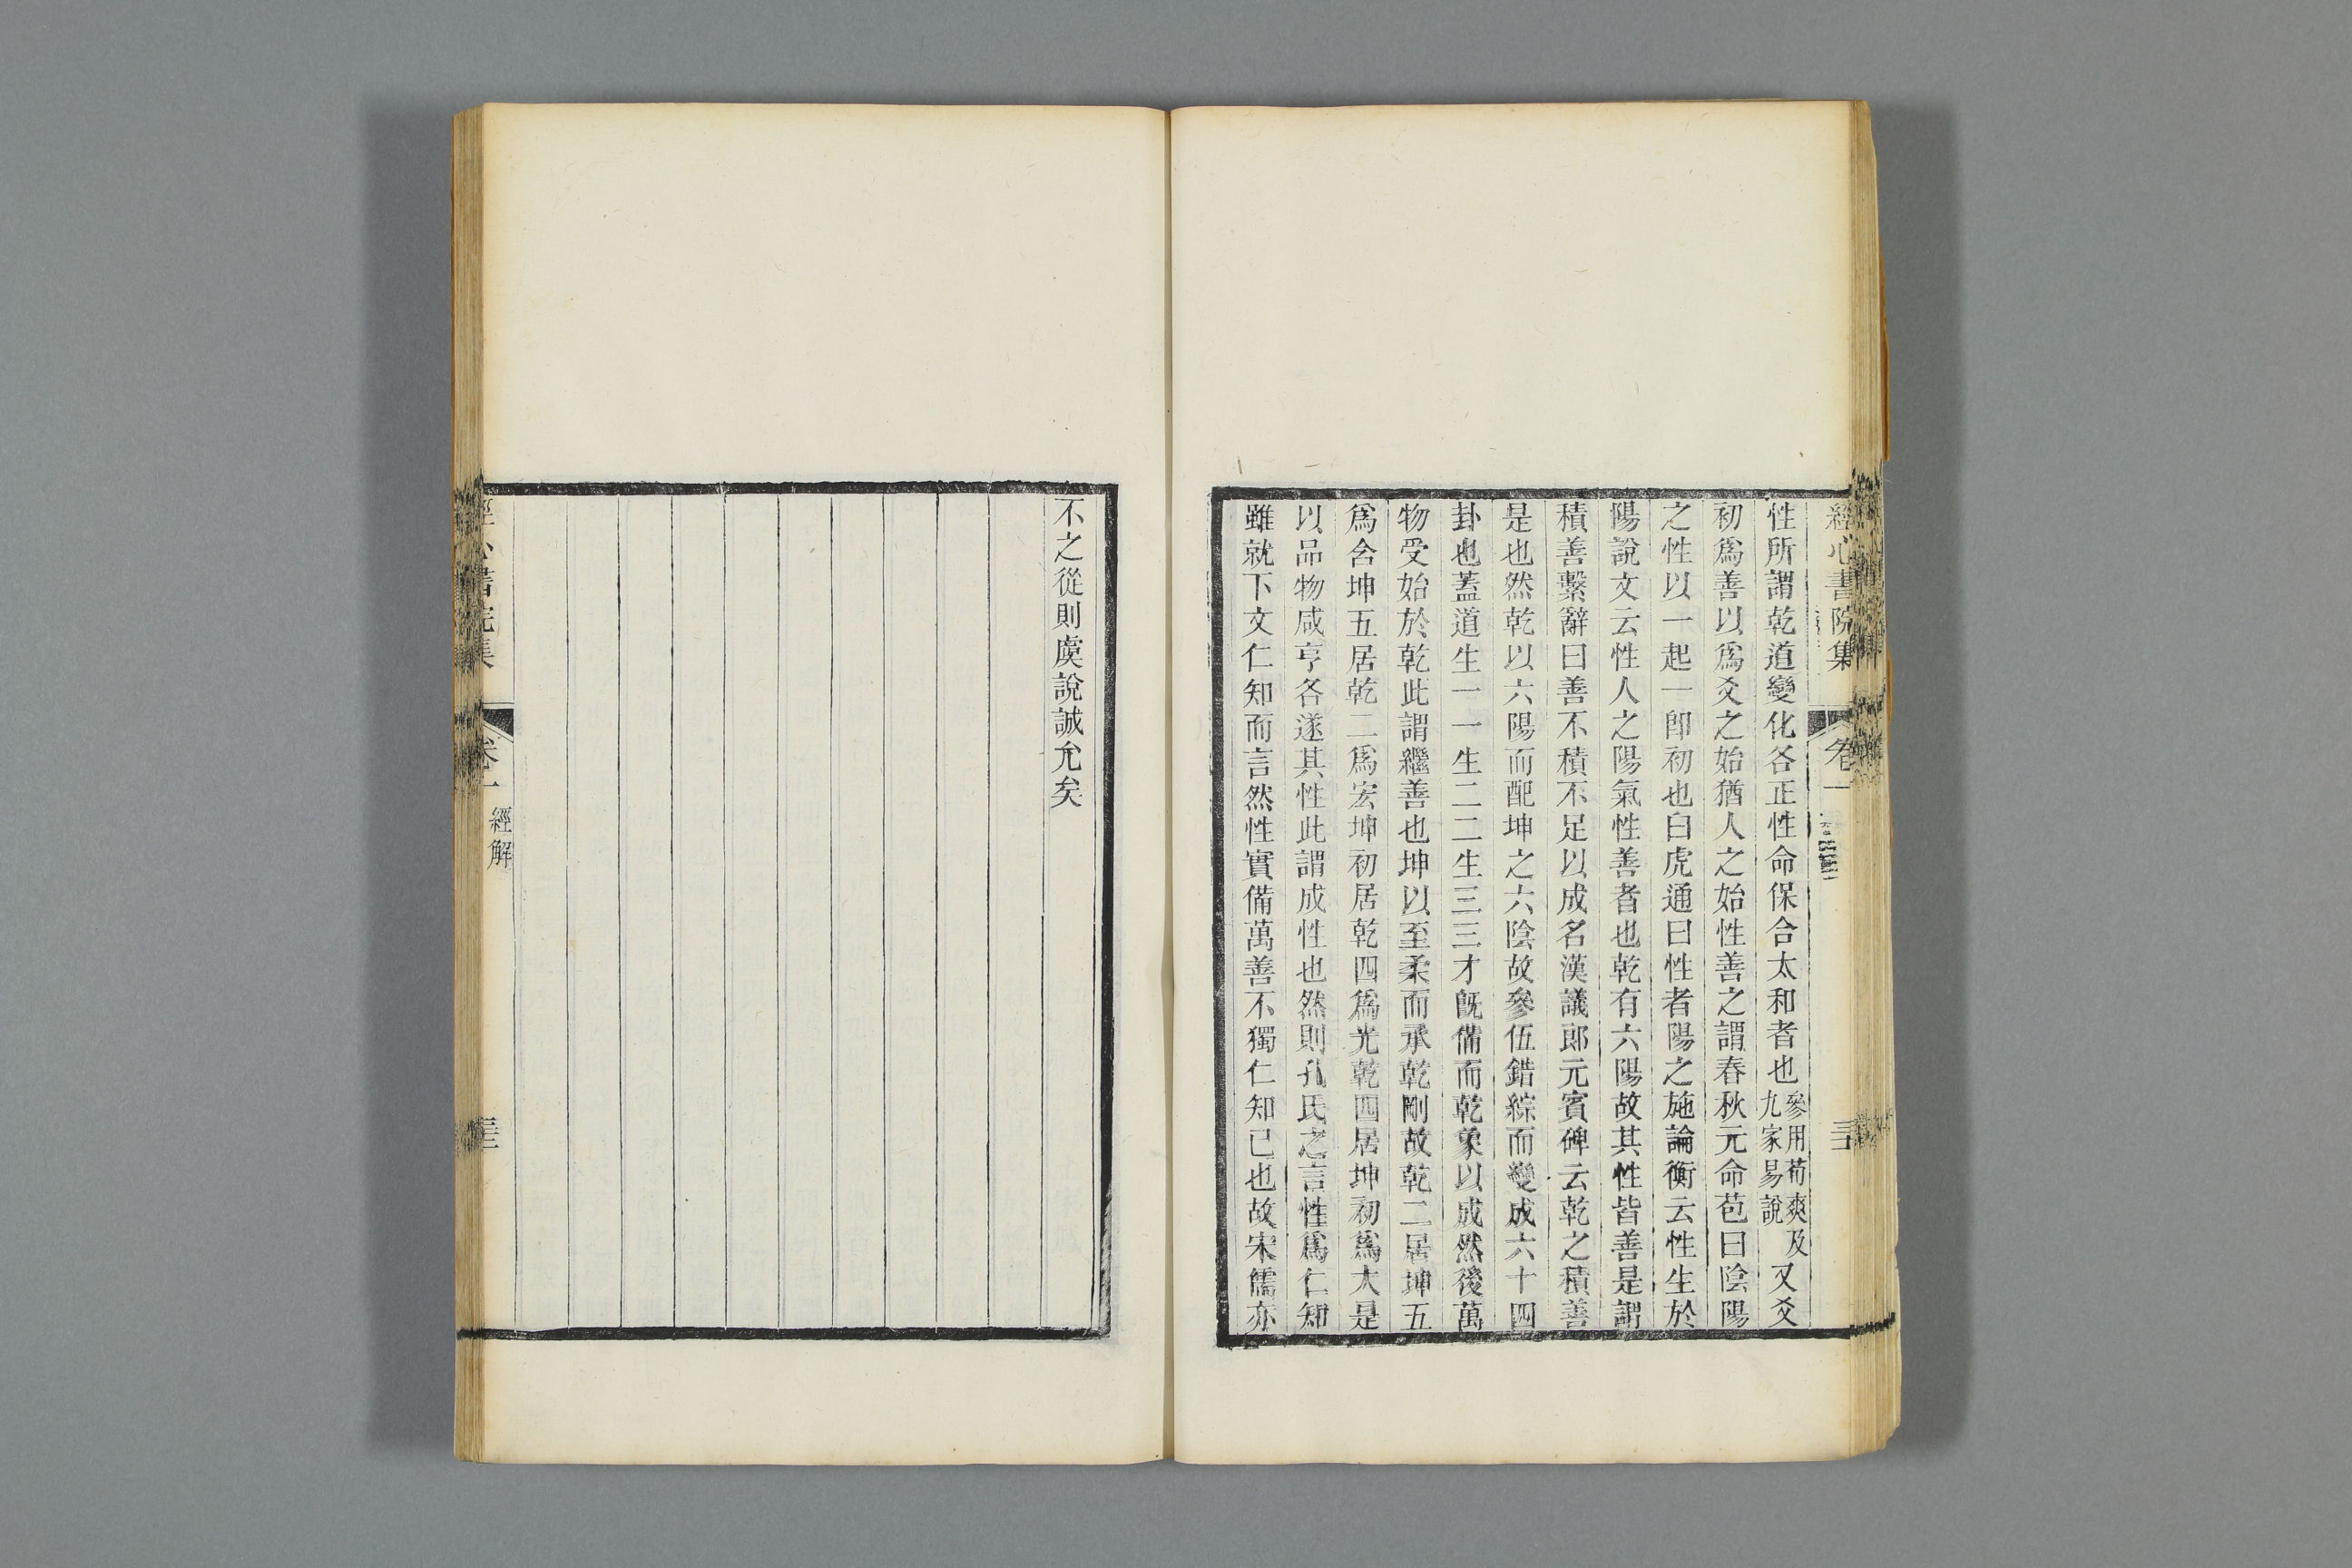 經心書院集
卷一
性所謂乾道變化各正性命保合太和者也參用荀爽及九家易說又爻
初爲善以爲爻之始猶人之始性善之謂春秋元命苞曰陰陽
之性以一起一卽初也白虎通曰性者陽之施論衡云性生於
陽說文云性人之陽氣性善者也乾有六陽故其性皆善是謂
積善繫辭曰善不積不足以成名漢議郎元賓碑云乾之積善
是也然乾以六陽而配坤之六陰故參伍錯綜而變成六十四
卦也蓋道生一一生二二生三三才旣備而乾象以成然後萬
物受始於乾此謂繼善也坤以至柔而承乾剛故乾二居坤五
爲含坤五居乾二爲宏坤初居乾四爲光乾四居坤初爲大是
以品物咸亨各遂其性此謂成性也然則孔氏之言性爲仁知
雖就下文仁知而言然性實備萬善不獨仁知已也故宋儒亦
不之從則虞說誠允矣
經心書院集
卷一
經解